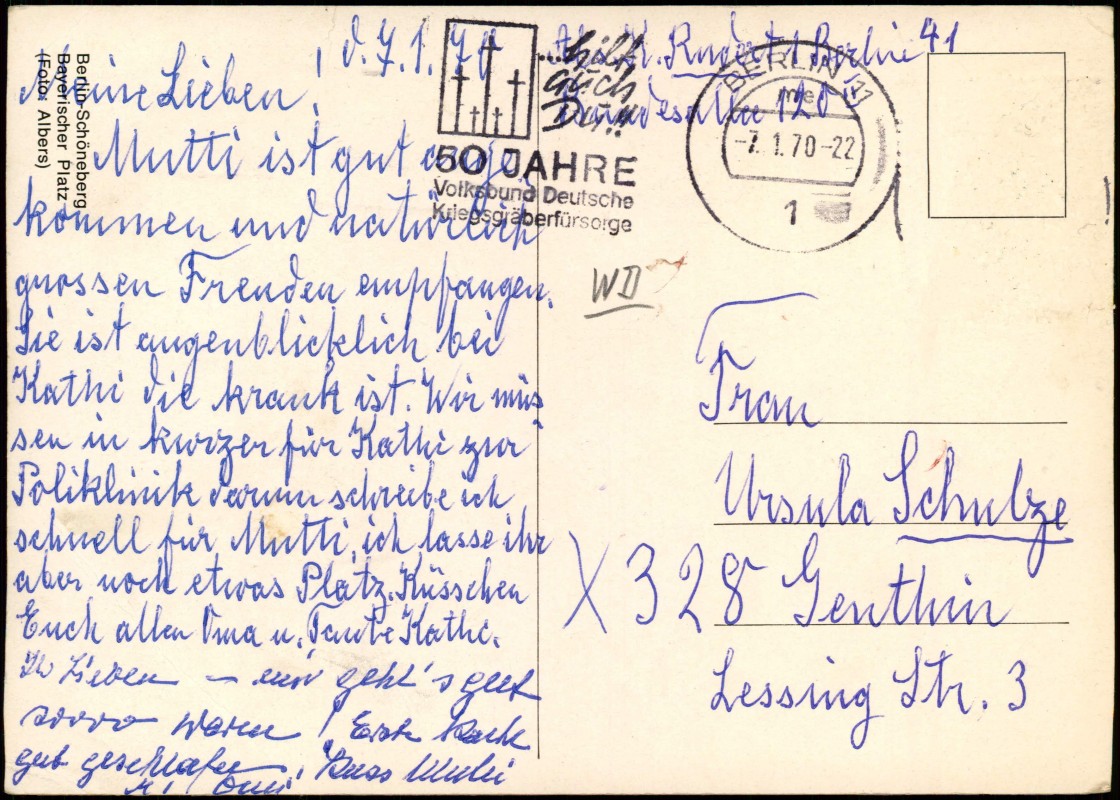 d. 7.1.70
Abs. K. Rudert 1 Berlin 41
Bundesallee 120
Meine Lieben!
Mutti ist gut ange
kommen und natürlich
grossen Freuden empfangen.
Sie ist augenblicklich bei
Kathi die krank ist. Wir müs
sen in kurzer für Kathi zur
Poliklinik darum schreibe ich
schnell für Mutti, ich lasse ihr
aber noch etwas Platz. Küsschen
Euch allen Oma u. Tante Kathi.
Ihr Lieben – mir geht's gut
soooo warm! Erste Nacht
gut geschlafen! Kuss
Berlin-Schöneberg
Bayerischer Platz
(Foto: Albers)
...hilf
auch
Du!!
50 JAHRE
Volksbund Deutsche
Kriegsgräberfürsorge
BERLIN 11
-7. 1.70-22
1
WD
Frau
Ursula Schulze
X 328 Genthin
Lessing Str. 3